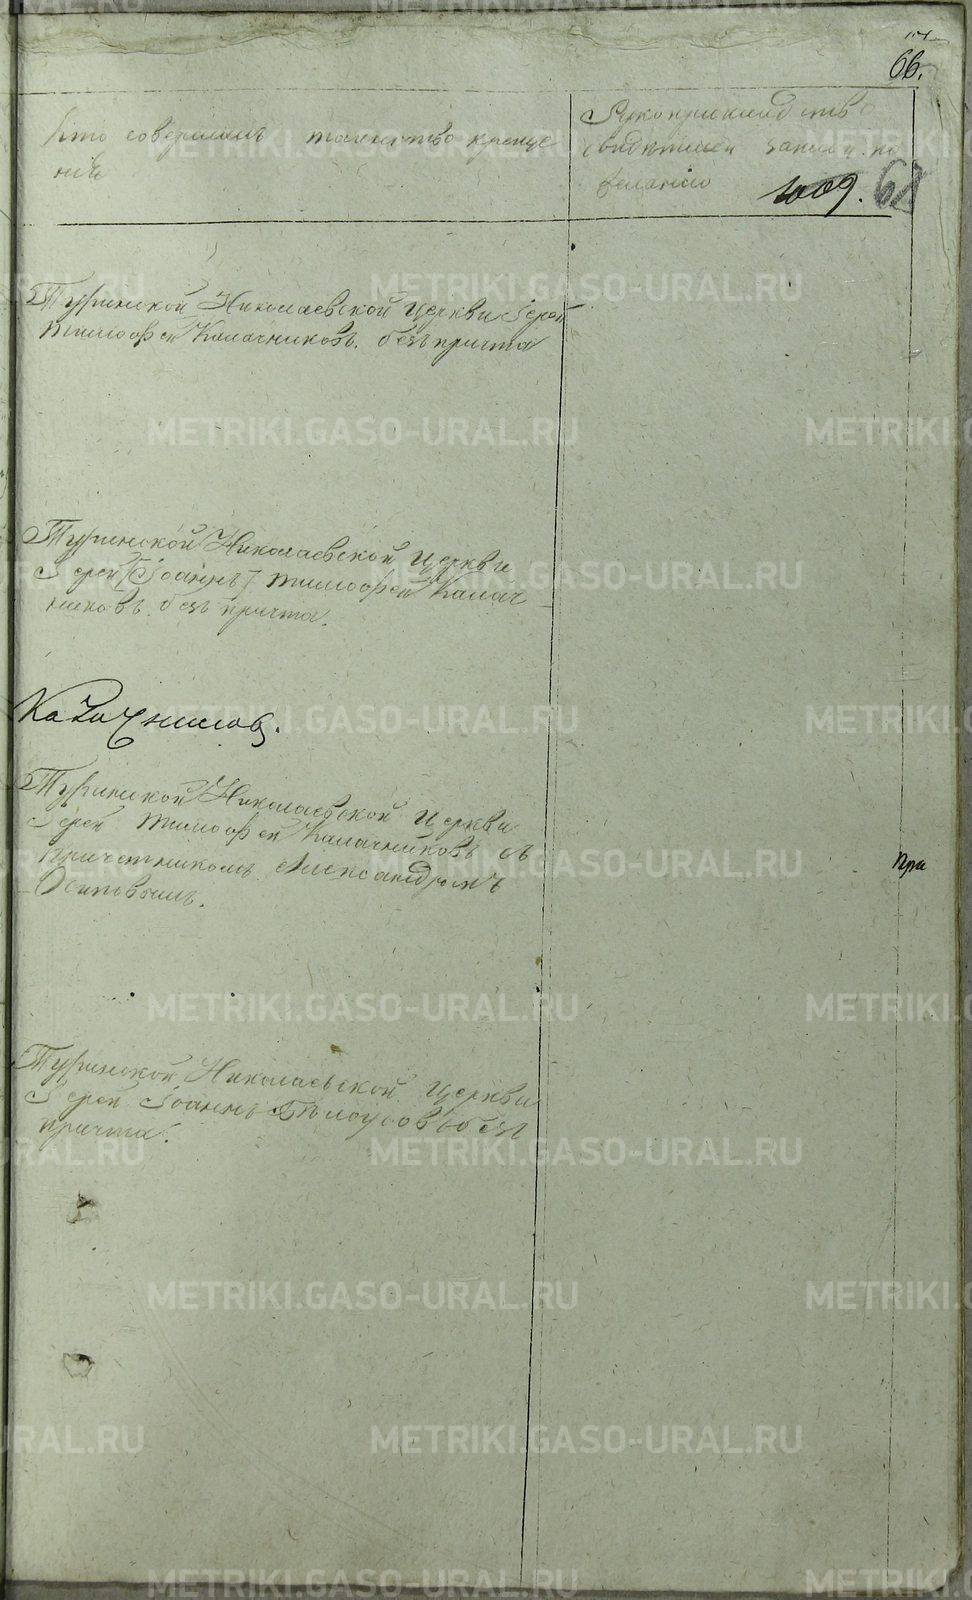 66.
Кто совершалъ таинство креще
нія
Рукоприкладство
свидѣтелей записи по
желанію
1009. 67
Туринской Николаевской Церкви Іерей
Тимофей Калачниковъ. безъ причта
Туринской Николаевской Церкви
Іерей [Іоаннъ] Тимофей Калач
никовъ. безъ причта.
Калачниковъ.
Туринской Николаевской Церкви
Іерей Тимофей Калачниковъ съ
Причетникомъ Александромъ
Осиповымъ.
При
Туринской Николаевской Церкви
Іерей Іоаннъ Бѣлоусовъ безъ
причта.
METRIKI.GASO-URAL.RU